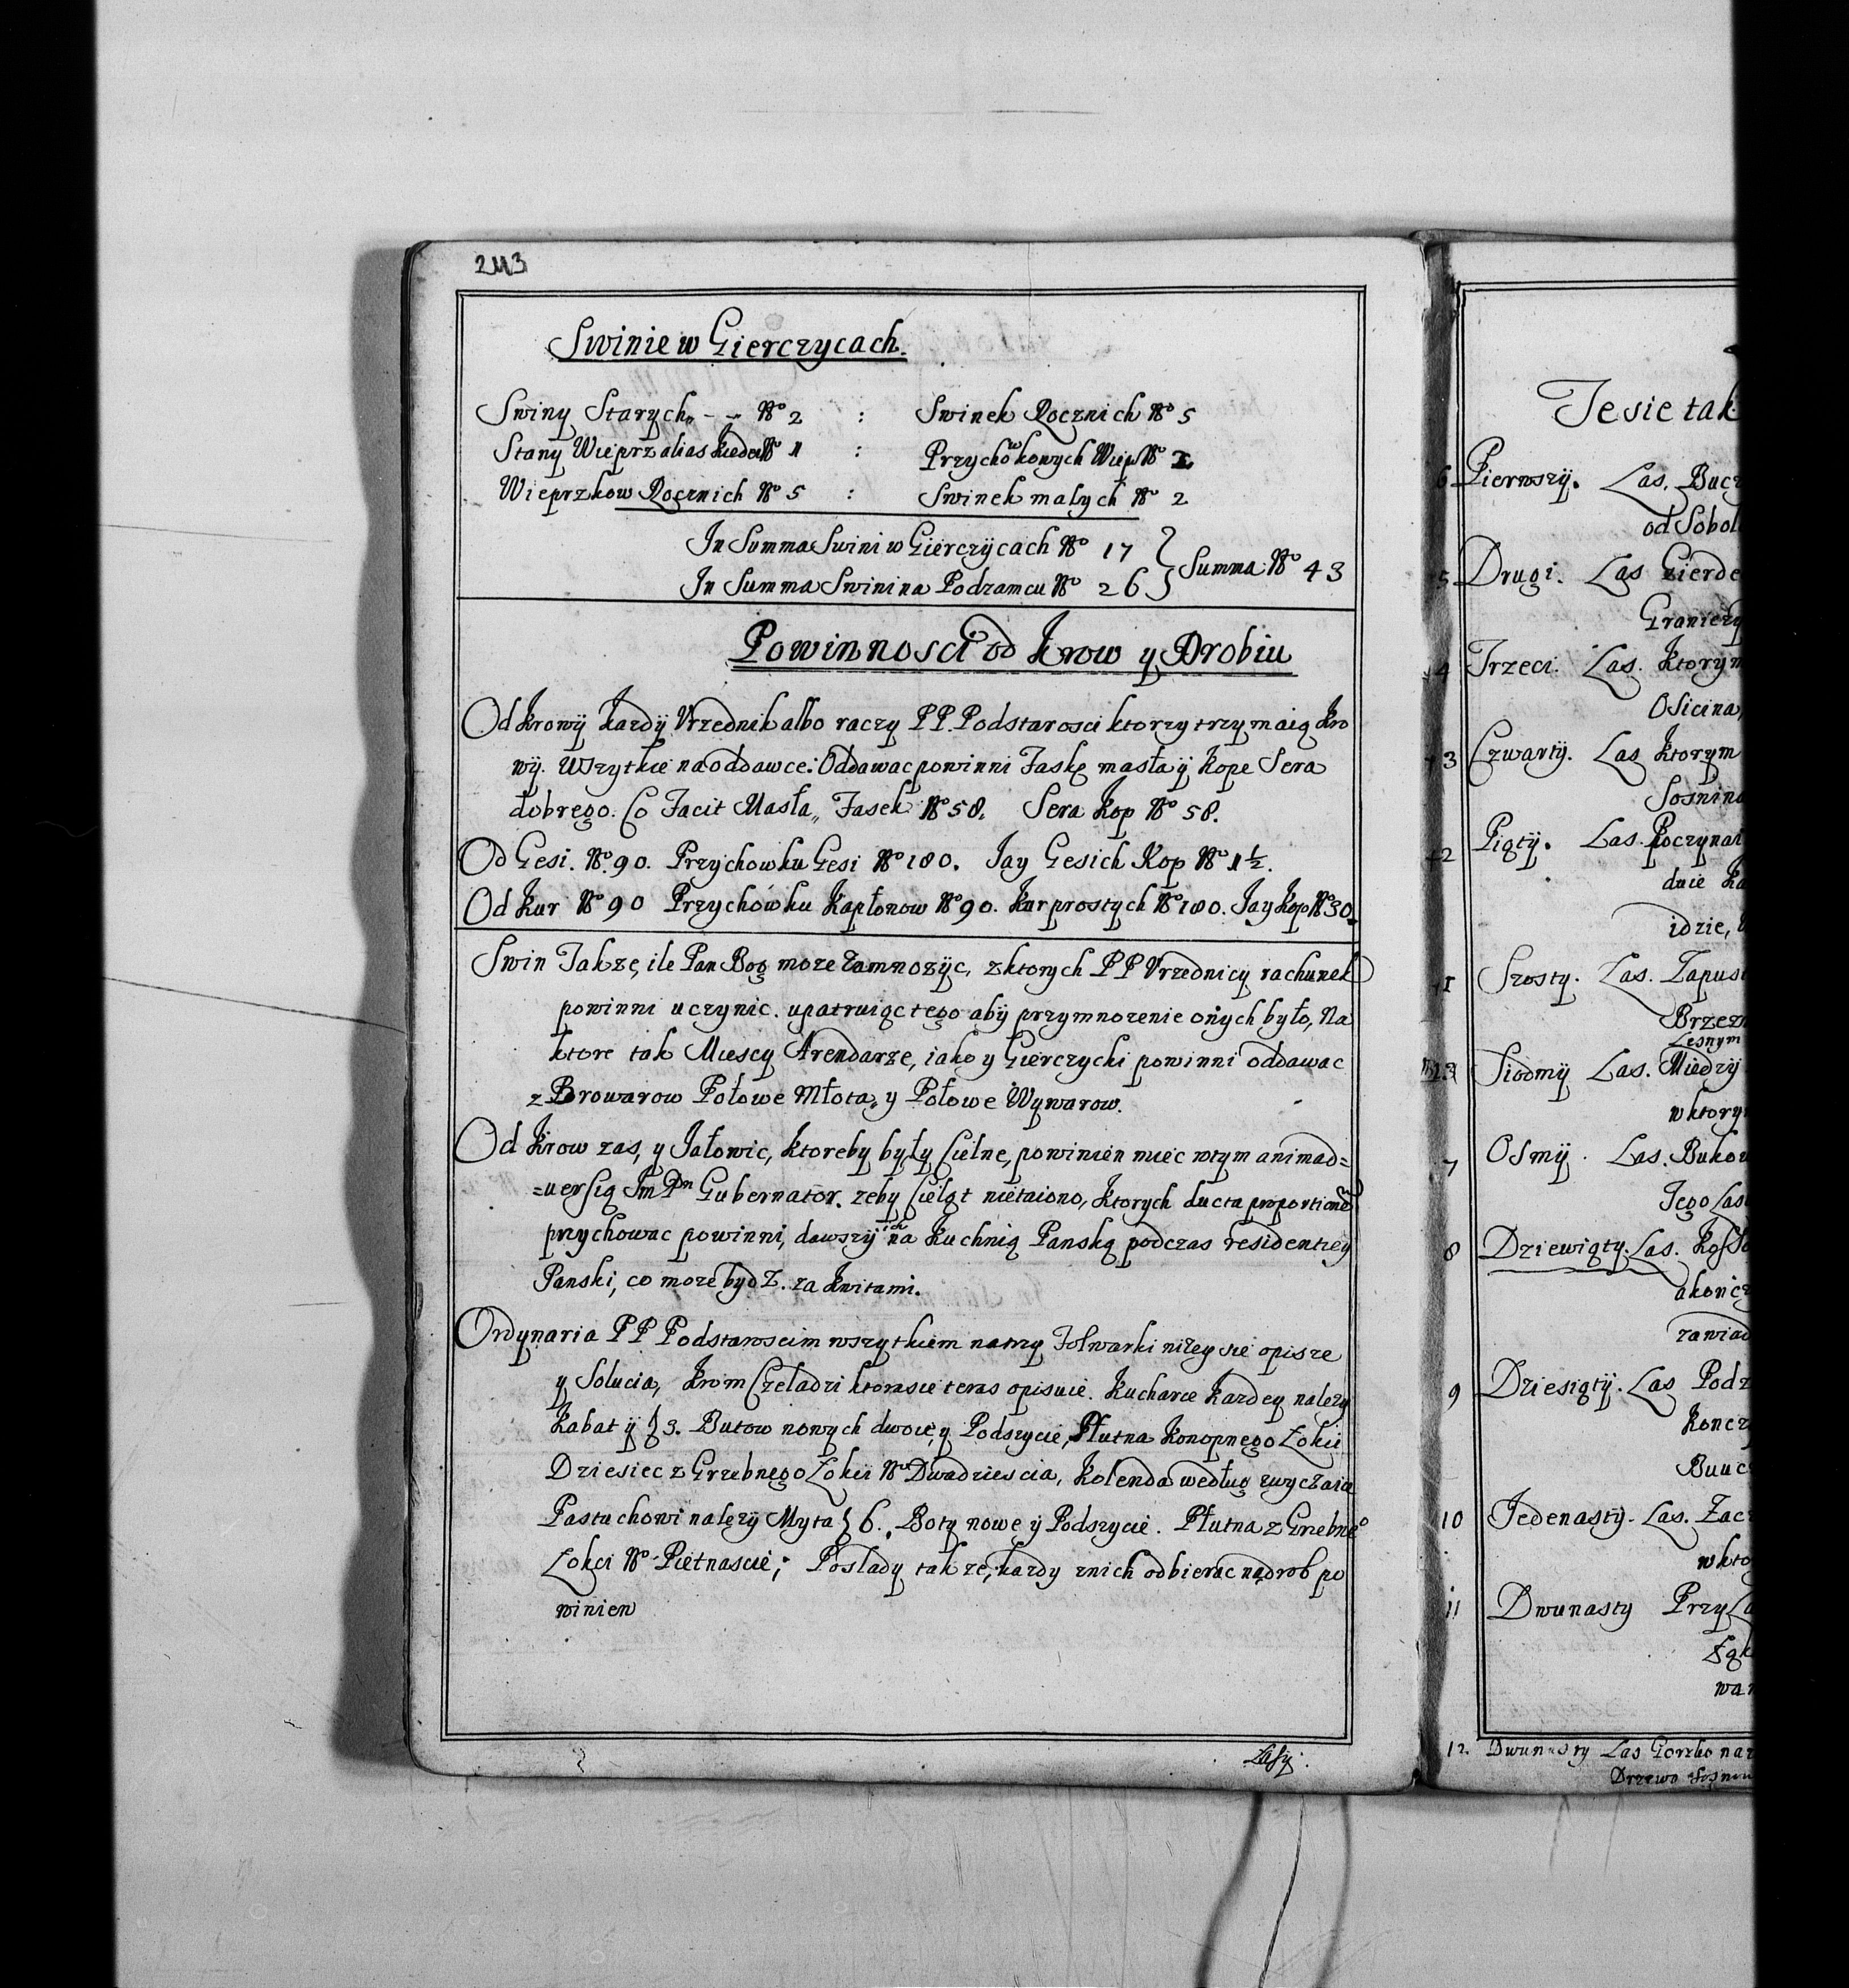 243
Swinie w Gierczycach.
Swiny Starych,, - - No 2 : Swinek Rocznich No 5
Stany Wieprz alias No 1 : Przychowkowych Wiep No 2
Wieprzkow Rocznich No 5 : Swinek malych No 2
In Summa Swini w Gierczycach No 17
In Summa Swini na Podzamcu No 26 } Summa No 43
Powinnosci od Krow y Drobiu
Od Krowÿ Kazdÿ Vrzednik albo raczy PP. Podstarosci ktorzy trzymaią Kro
wÿ. Wszytkie na oddawce: Oddawac powinni Faskę masła ÿ Kope Sera
dobrego. Co Facit Masła,, Fasek No 58. Sera Kop No 58.
Od Gesi. No. 90. Przychowku Gesi No 180. Jay Gesich Kop No 1½.
Od Kur No 90 Przychówku Kapłonow No 90. Kur prostych No 180. Jay Kop No 30.
Swin Takze, ile Pan Bog moze zamnozÿc, z ktorych PP Vrzednicy rachunek
powinni uczynic. upatruiąc tego abÿ przymnozenie onych było, Na
ktore tak Miescy Arendarze, iako y Gierczycki powinni oddawac
z Browarow Połowe Młota,, y Połowe Wywarow.
Od Krow zas, y Jałowic, ktoreby były Cielne, powinien miec wtym animad=
=uersią Im Pn Gubernator. zeby Cieląt nietaiono, ktorych ducta proportione
przychowac powinni, dawszÿ ich na Kuchnią Panską podczas residentiey
Panski, co moze bydz. za kwitami.
Ordynaria PP Podstaroscim wszytkiem na trzy Folwarki nizey sie opisze
y Solucia, krom Czeladzi ktora sie teras opisuie. Kucharce Kazdey nalezy
Kabat ÿ f 3. Butow nowych dwoie, y Podszycie, Płutna Konopnego Łokci
Dziesiec z Grzebnego Łokci No Dwadziescia, Kolenda według zwyczaiu
Pastuchowi nalezÿ Myta f 6. Boty nowe ÿ Podszycie. Płutna z Grzebneo
Łokci No Pietnascie; Poslady takze, kazdy znich odbierac nadrob po
winien
Lasy.
Te sie tak
6 Pierwszÿ. Las. Bucz
od Sobol
5 Drugi. Las Gierde
Graniczy
4 Trzeci. Las. Ktorym
Osicina,
3 Czwartÿ. Las Ktorym
Sosnina
2 Piątÿ. Las. Poczyna
duie Ka
idzie,
1 Szosty. Las. Zapus
Brzez
Lesnym
Siodmÿ Las. Miedzÿ
w ktory
7 Osmÿ. Las. Buko
Tego Las
8 Dziewiąty. Las.
akoncz
zawiad
9 Dziesiątÿ. Las Podz
Koncz
Buuc
10 Jedenasty. Las. Zacz
wkto
11 Dwunasty Przy La
war
12. Dwunasty Las Gorzko naz
Drzewo Sosnow